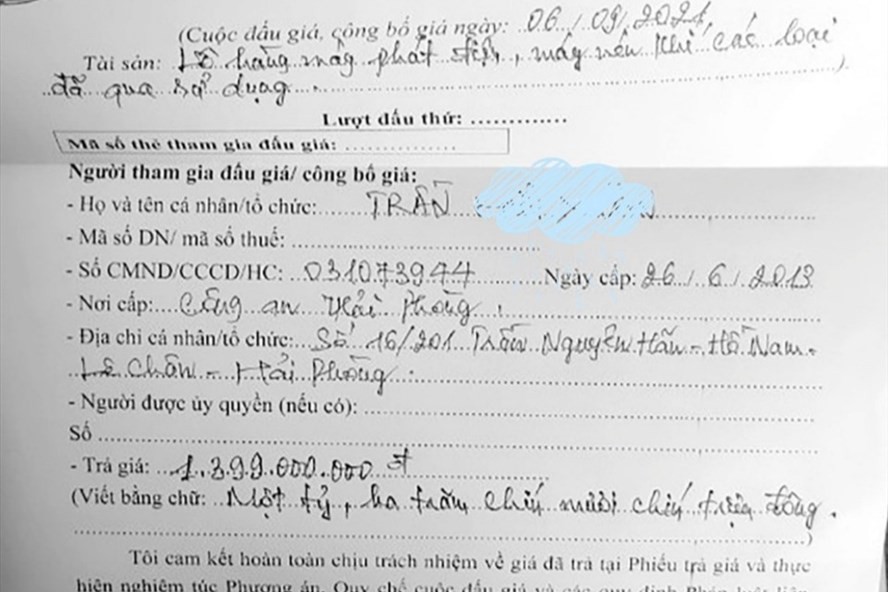 (Cuộc đấu giá, công bố giá ngày: 06 / 09 / 2021
Tài sản: Lô hàng máy phát điện, máy nén khí các loại
đã qua sử dụng.
Lượt đấu thứ:
Mã số thẻ tham gia đấu giá:
Người tham gia đấu giá/ công bố giá:
- Họ và tên cá nhân/tổ chức: TRẦN
- Mã số DN/ mã số thuế:
- Số CMND/CCCD/HC: 031073944 Ngày cấp: 26 / 6 / 2013
- Nơi cấp: Công an Hải Phòng.
- Địa chỉ cá nhân/tổ chức: Số 16/201 Trần Nguyên Hãn - Hồ Nam -
Lê Chân - Hải Phòng.
- Người được ủy quyền (nếu có):
Số
- Trả giá: 1.399.000.000 đ
(Viết bằng chữ: Một tỷ, ba trăm chín mươi chín triệu đồng.
)
Tôi cam kết hoàn toàn chịu trách nhiệm về giá đã trả tại Phiếu trả giá và thực
hiện nghiêm túc Phương án, Quy chế cuộc đấu giá và các quy định Pháp luật liên